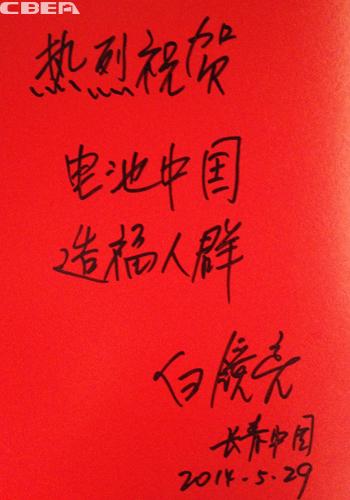 CBEA
热烈祝贺
电池中国
造福人群
白镜亮
长春中国
2014.5.29